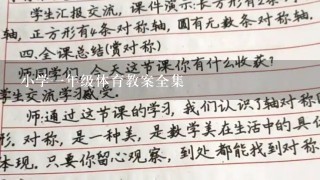 学生汇报交流,课件演示:长方形有2条
轴,正方形有4条对称轴,圆有无数条对称轴.
四.全课总结(赏对称)
师:同学们,今天这节课你有什么收获?
小学一年级体育教案全集
学生交流学习感受.
师:通过这节课的学习,我们认识了轴对称图
形.对称,是一种美,是数学美在生活中的具体
体现.只要你留心观察,到处都能找到对称